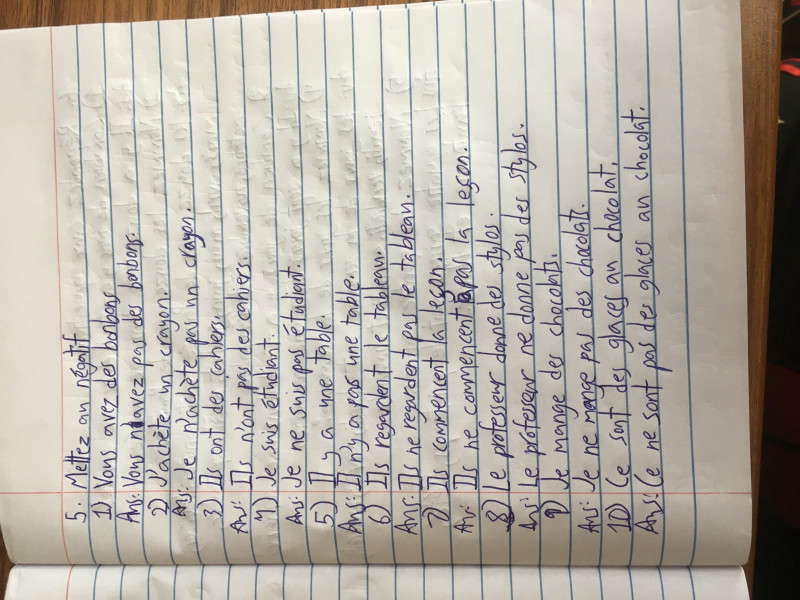 5. Mettez au négatif
1) Vous avez des bonbons
Ans: Vous n'avez pas des bonbons.
2) J'achète un crayon.
Ans: Je n'achète pas un crayon.
3) Ils ont des cahiers.
Ans: Ils n'ont pas des cahiers.
4) Je suis étudiant.
Ans: Je ne suis pas étudiant.
5) Il y a une table.
Ans: Il n'y a pas une table.
6) Ils regardent le tableau.
Ans: Ils ne regardent pas le tableau.
7) Ils commencent la leçon.
Ans: Ils ne commencent pas la leçon.
8) Le professeur donne des stylos.
Ans: Le professeur ne donne pas des stylos.
9) Je mange des chocolats.
Ans: Je ne mange pas des chocolats.
10) Ce sont des glaces au chocolat.
Ans: Ce ne sont pas des glaces au chocolat.